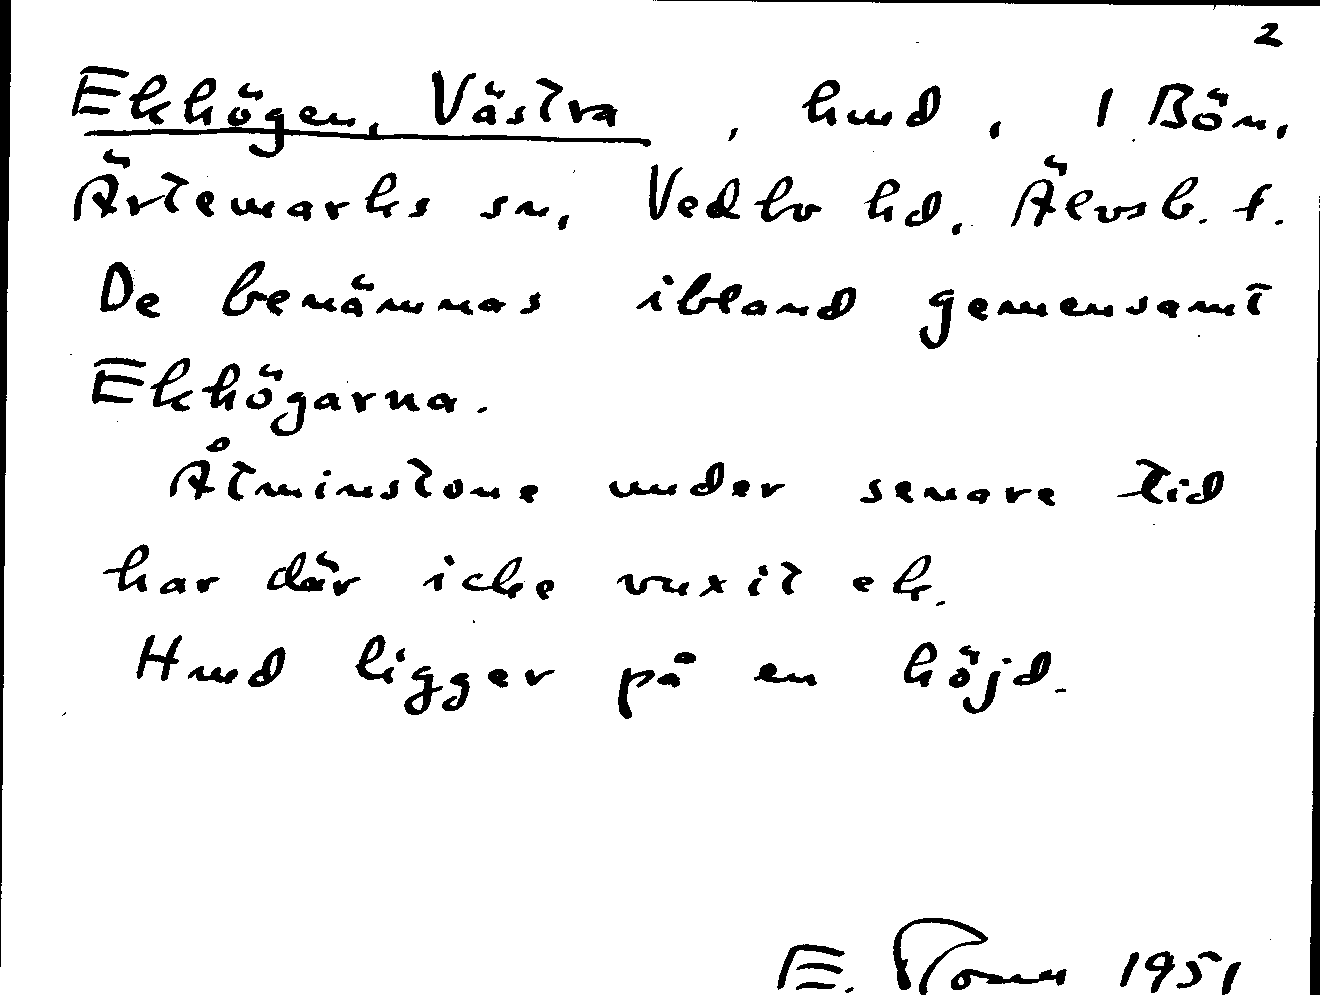 2
Ekhögen, Västra, hmd, 1 Bön,
Ärtemarks sn, Vedbo hd, Älvsb. l.
De benämnas ibland gemensamt
Ekhögarna.
Åtminstone under senare tid
har där icke vuxit ek.
Hmd ligger på en höjd.
E. 1951